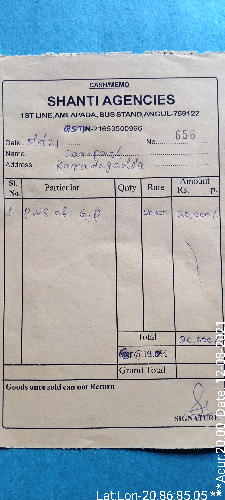 CASH/MEMO
SHANTI AGENCIES
1ST LINE, AMLAPADA, BUS STAND, ANGUL-759122
GSTIN-21653500996
Date No. 656
Name
Address
Sl. No. Particular Qnty Rate Amount Rs. p.
1 G.P 20,000/
Total 20,000/
Grand Total
Goods once sold can not Return
SIGNATURE
Lat:Lon-20.86:85.05
***Acur:20.00 Date:12-08-2021